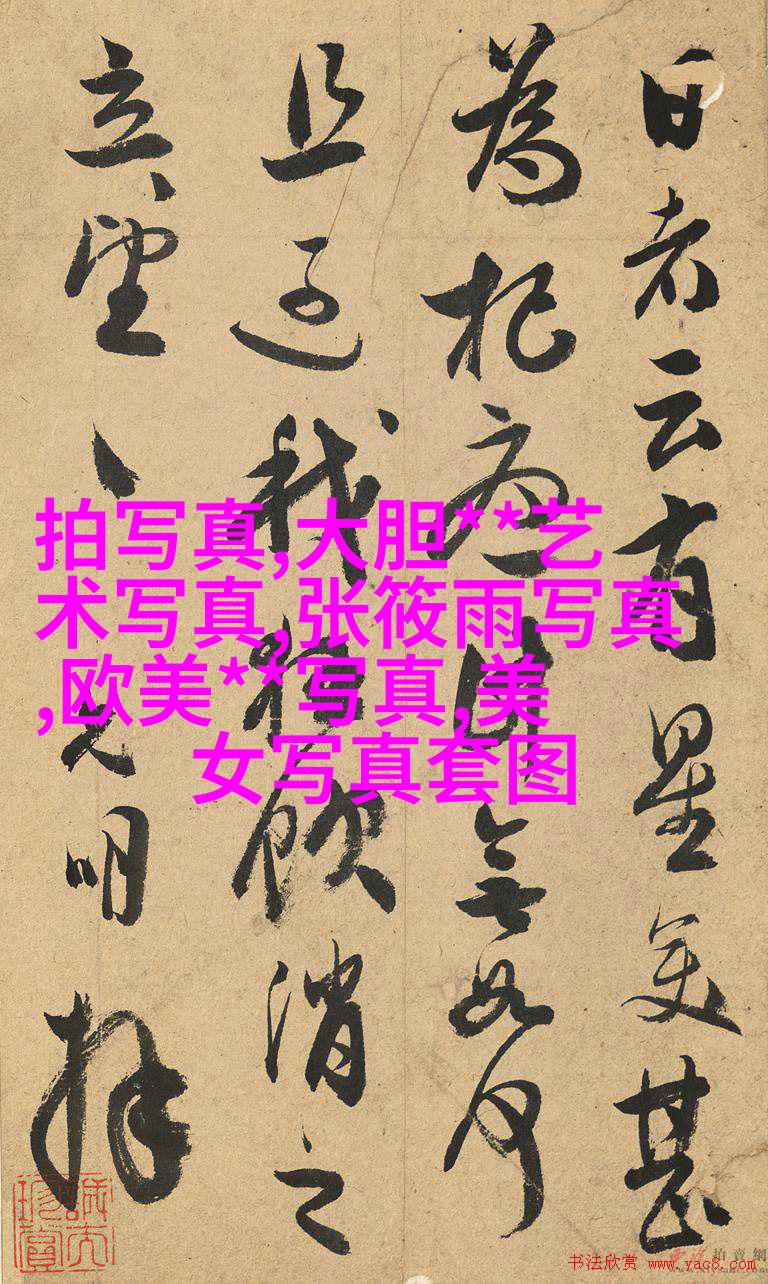 日者云有星变甚
為杞無如何
且过我飲消之
立望、、光明拜
拍写真,大胆**艺
术写真,张筱雨写真
,欧美**写真,美
女写真套图
书法欣赏 www.yac8.com